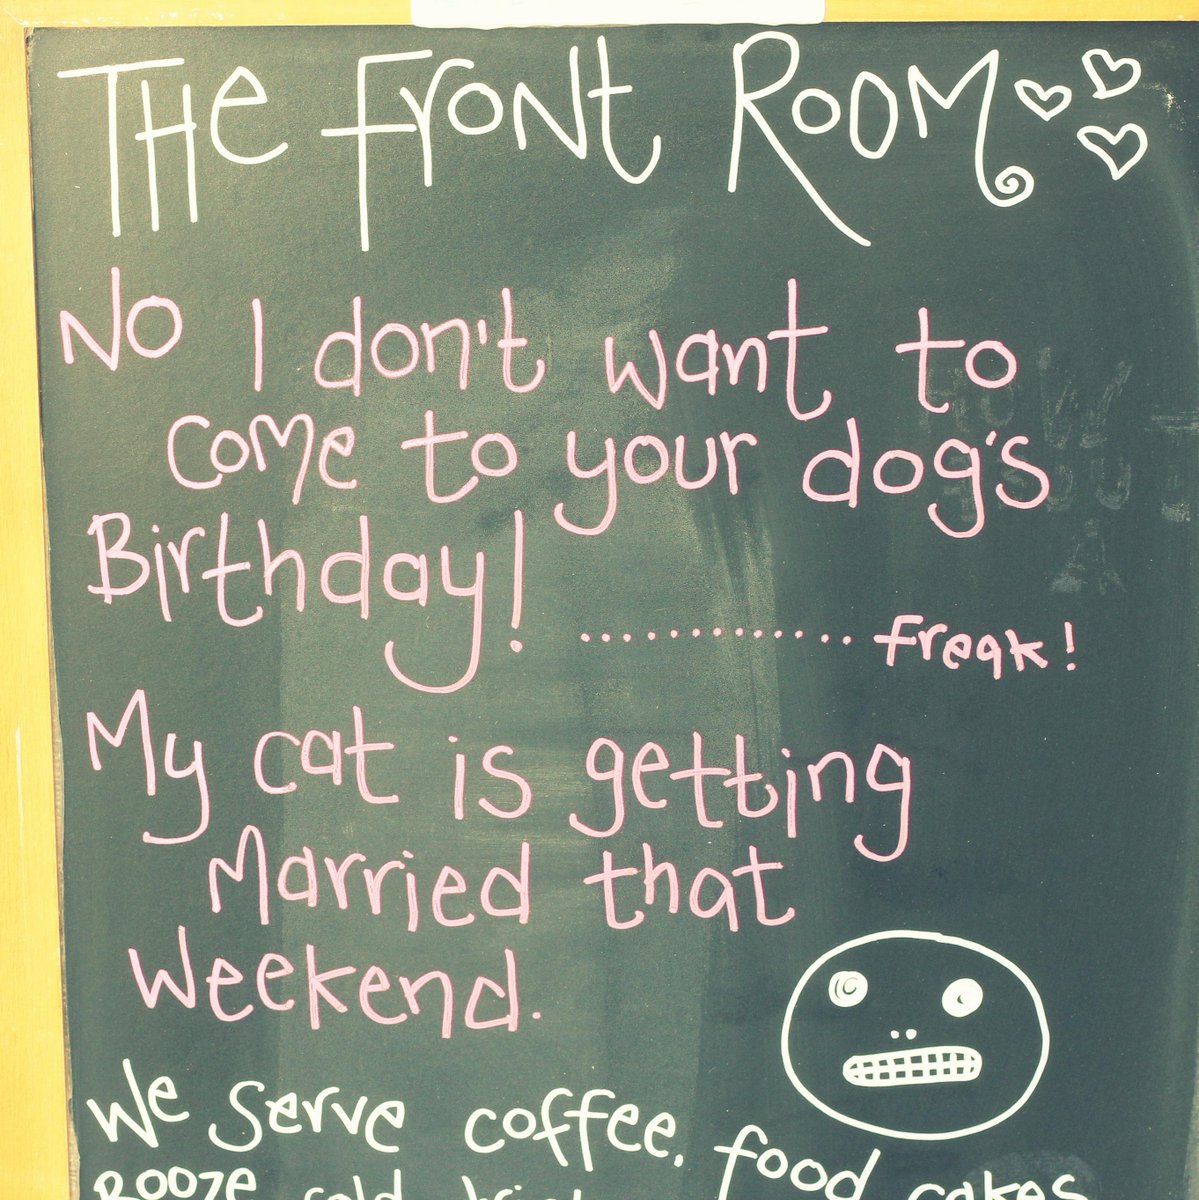 THe Front ROOM
No I don't want to
come to your dog's
Birthday! ............. freak!
My cat is getting
Married that
weekend.
We serve coffee, food
Booze cold cakes